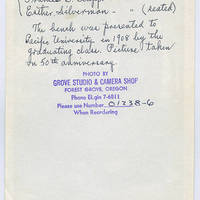 Esther Silverman - " (seated)
The bench was presented to
Pacific University in 1908 by the
graduating class. Picture taken
on 50th anniversary.
PHOTO BY
GROVE STUDIO & CAMERA SHOP
FOREST GROVE, OREGON
Phone ELgin 7-6811
Please use Number 01238-6
When Reordering